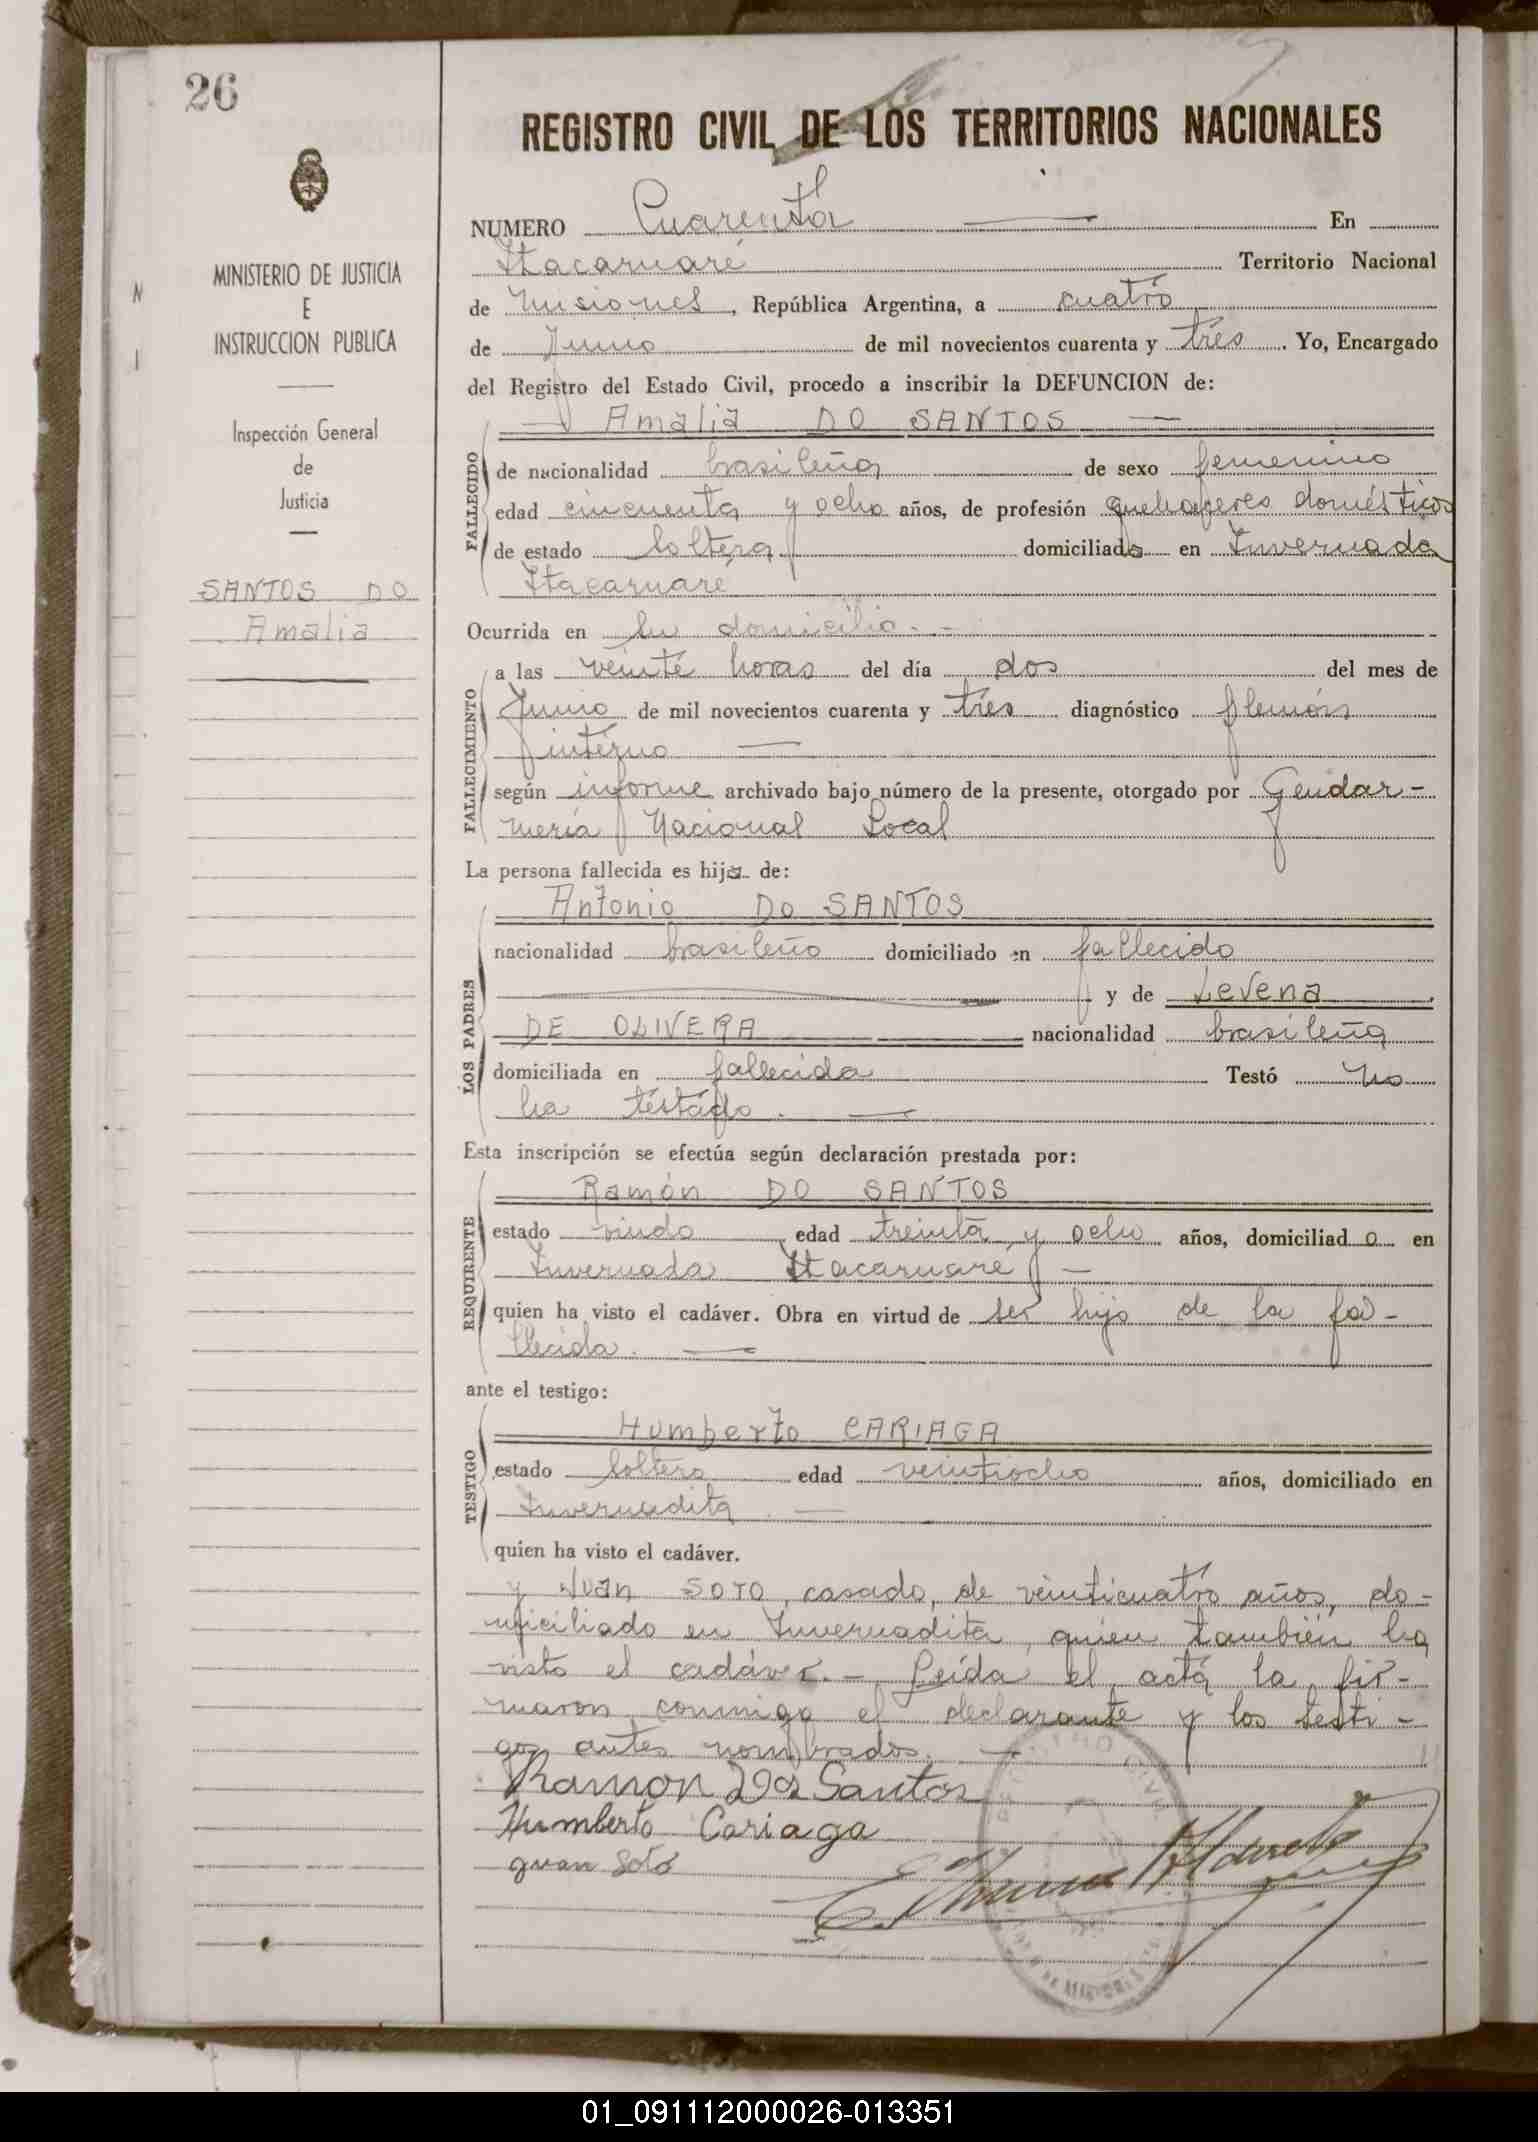 26
REGISTRO CIVIL DE LOS TERRITORIOS NACIONALES
MINISTERIO DE JUSTICIA
E
INSTRUCCION PUBLICA
Inspección General
de
Justicia
SANTOS DO
Amalia
NUMERO Cuarenta En
Itacaruaré Territorio Nacional
de Misiones, República Argentina, a cuatro
de Junio de mil novecientos cuarenta y tres. Yo, Encargado
del Registro del Estado Civil, procedo a inscribir la DEFUNCION de:
Amalia DO SANTOS
FALLECIDO
de nacionalidad brasileña de sexo femenino
edad cincuenta y ocho años, de profesión quehaceres domésticos
de estado soltera domiciliada en Invernada
Itacaruaré
Ocurrida en su domicilio.-
FALLECIMIENTO
a las veinte horas del día dos del mes de
Junio de mil novecientos cuarenta y tres diagnóstico flemón
interno
según informe archivado bajo número de la presente, otorgado por Gendar-
mería Nacional Local
La persona fallecida es hija de:
LOS PADRES
Antonio DO SANTOS
nacionalidad brasileño domiciliado en fallecido
y de Levena
DE OLIVERA nacionalidad brasileña
domiciliada en fallecida Testó No
ha testado.
Esta inscripción se efectúa según declaración prestada por:
REQUIRENTE
Ramón DO SANTOS
estado viudo edad treinta y ocho años, domiciliado en
Invernada Itacaruaré
quien ha visto el cadáver. Obra en virtud de ser hijo de la fa-
llecida.
ante el testigo:
TESTIGO
Humberto CARIAGA
estado soltero edad veintiocho años, domiciliado en
Invernadita
quien ha visto el cadáver.
y Juan SOTO, casado, de veinticuatro años, do-
miciliado en Invernadita, quien también ha
visto el cadáver.- Leída el acta la fir-
maron conmigo el declarante y los testi-
gos antes nombrados.
Ramon Dos Santos
Humberto Cariaga
Juan Soto
REGISTRO CIVIL
MISIONES
01_091112000026-013351